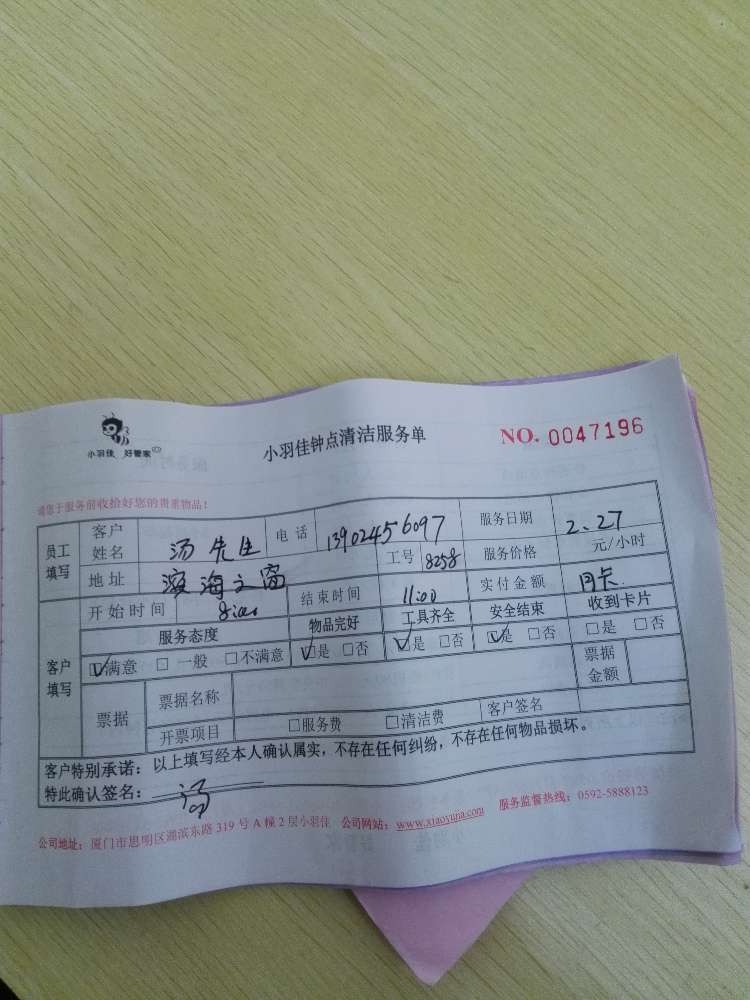 小羽佳 好管家
小羽佳钟点清洁服务单
NO. 0047196
请您于服务前收拾好您的贵重物品!
员工填写 客户姓名 汤先生 电话 13902456097 服务日期 2.27
地址 滨海之窗 工号 8258 服务价格 元/小时
客户填写 开始时间 8:00 结束时间 11:00 实付金额 月卡
服务态度 物品完好 工具齐全 安全结束 收到卡片
☑满意 □一般 □不满意 ☑是 □否 ☑是 □否 ☑是 □否 □是 □否
票据 票据名称 票据金额
开票项目 □服务费 □清洁费 客户签名
客户特别承诺:以上填写经本人确认属实,不存在任何纠纷,不存在任何物品损坏。
特此确认签名: 汤
公司地址:厦门市思明区湖滨东路319号A幢2层小羽佳 公司网站:www.xiaoyujia.com 服务监督热线:0592-5888123